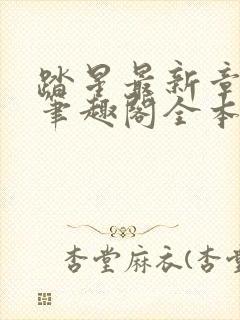 踏星最新章
笔趣阁全本
杏堂麻衣(杏堂